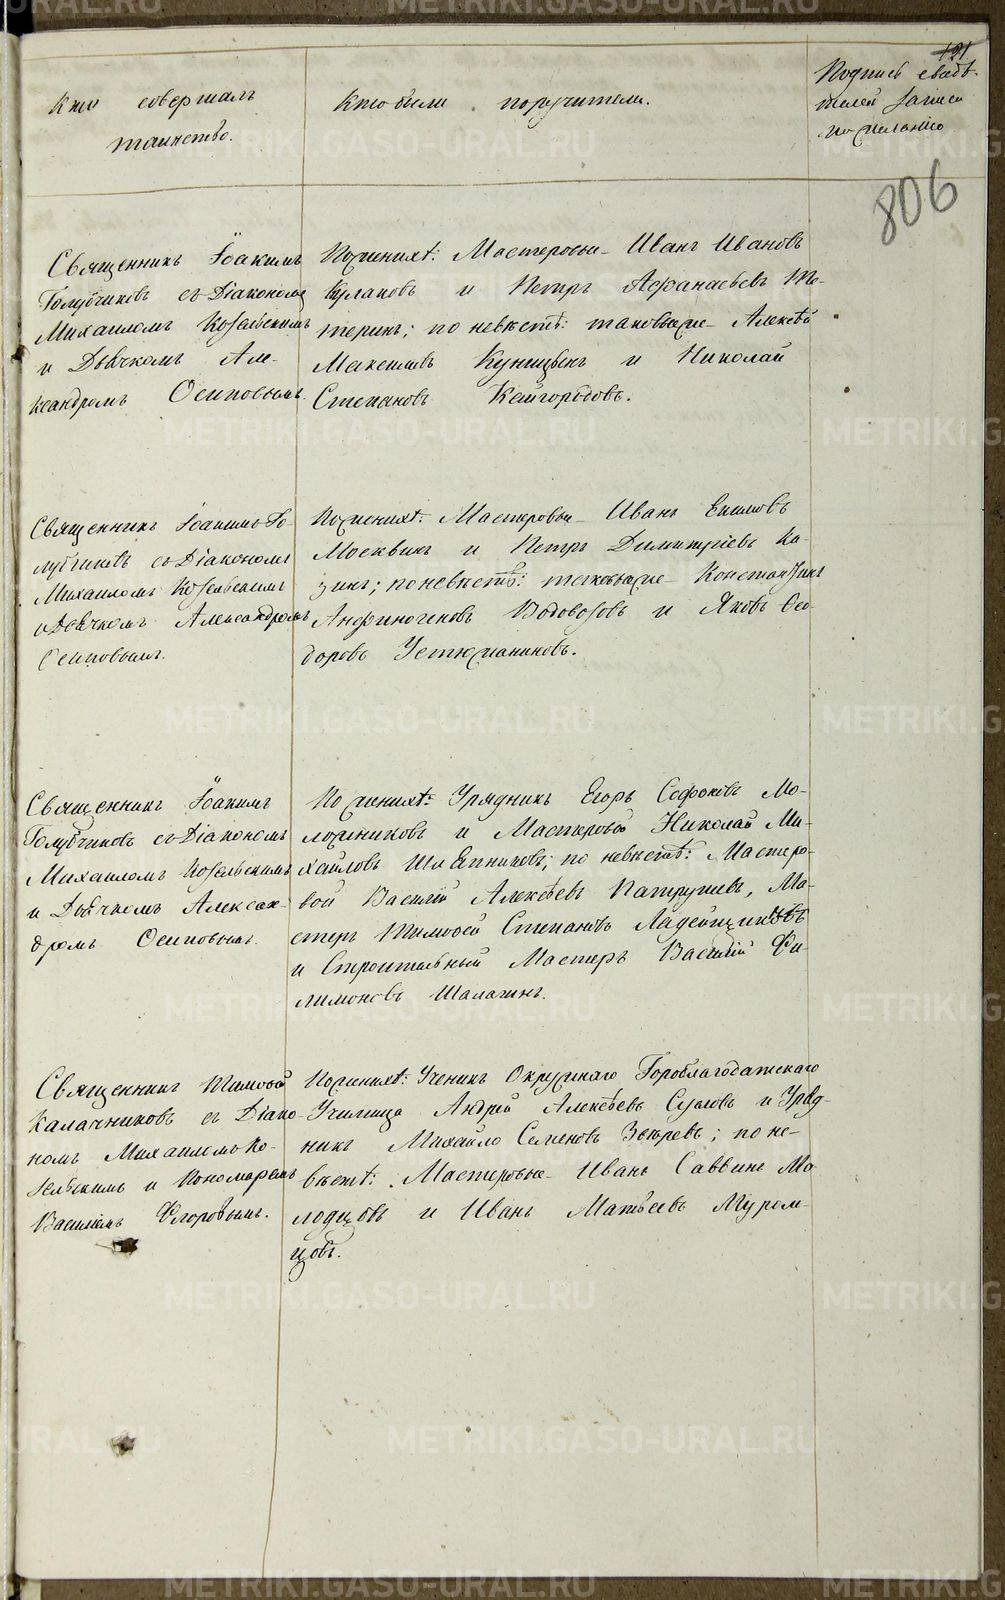 191
806
Кто совершалъ
таинство.
Кто были поручители.
Подпись свидѣ-
телей записи
по желанію
Священникъ Іоакимъ
Голубчиковъ съ Діакономъ
Михаиломъ Козельскимъ
и Дьячкомъ Але-
ксандромъ Осиповымъ.
По женихѣ: Мастеровые Иванъ Ивановъ
Кулаковъ и Петръ Афанасьевъ Те-
теринъ; по невѣстѣ: таковые же Алексѣй
Максимовъ Куницынъ и Николай
Степановъ Кайгородовъ.
Священникъ Іоакимъ Го-
лубчиковъ съ Діакономъ
Михаиломъ Козельскимъ
и Дьячкомъ Александромъ
Осиповымъ.
По женихѣ: Мастеровые Иванъ Екимовъ
Москвинъ и Петръ Димитріевъ Ка-
зинъ; по невѣстѣ: таковые же Константинъ
Анфиногеновъ Водовозовъ и Яковъ Ѳео-
доровъ Устюжаниновъ.
Священникъ Іоакимъ
Голубчиковъ съ Діакономъ
Михаиломъ Козельскимъ
и Дьячкомъ Алексан-
дромъ Осиповымъ.
По женихѣ: Урядникъ Егоръ Софоновъ Мо-
ложниковъ и Мастеровой Николай Ми-
хайловъ Шляпниковъ; по невѣстѣ: Мастеро-
вой Василій Алексѣевъ Патрушевъ, Ма-
стеръ Тимофей Степановъ Ладейщиковъ
и Строительный Мастеръ Василій Фи-
лимоновъ Шалагинъ.
Священникъ Тимофей
Калачниковъ съ Діако-
номъ Михаиломъ Ко-
зельскимъ и Пономаремъ
Василіемъ Флоровымъ.
По женихѣ: Ученикъ Окружнаго Гороблагодатскаго
Училища Андрей Алексѣевъ Сусловъ и Уряд-
никъ Михайло Семеновъ Звѣревъ; по не-
вѣстѣ: Мастеровые Иванъ Саввинъ Мо-
лодцовъ и Иванъ Матвѣевъ Муром-
цовъ.
METRIKI.GASO-URAL.RU